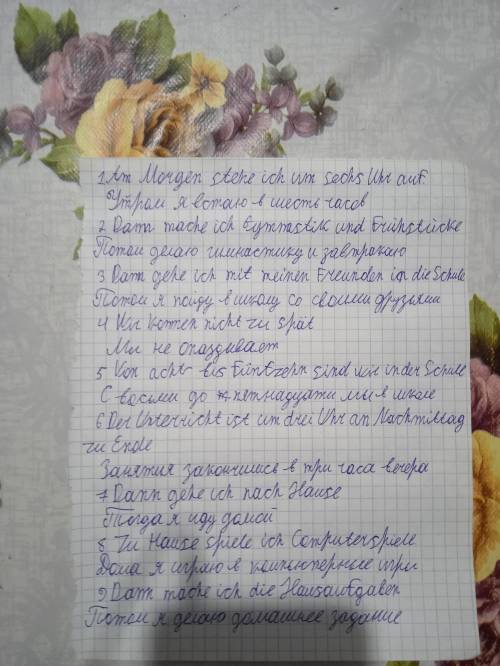 1 Am Morgen stehe ich um sechs Uhr auf.
Утром я встаю в шесть часов
2 Dann mache ich Gymnastik und Frühstücke
Потом делаю гимнастику и завтракаю
3 Dann gehe ich mit meinen Freunden in die Schule
Потом я пойду в школу со своими друзьями
4 Wir kommen nicht zu spät
Мы не опаздывает
5 Von acht bis Fünfzehn sind wir in der Schule
С восьми до пятнадцати мы в школе
6 Der Unterricht ist um drei Uhr an Nachmittag
zu Ende
Занятия закончились в три часа вечера
7 Dann gehe ich nach Hause
Тогда я иду домой
8 Zu Hause spiele ich Computerspiele
Дома я играю в компютерные игры
9 Dann mache ich die Hausaufgaben
Потом я делаю домашнее задание